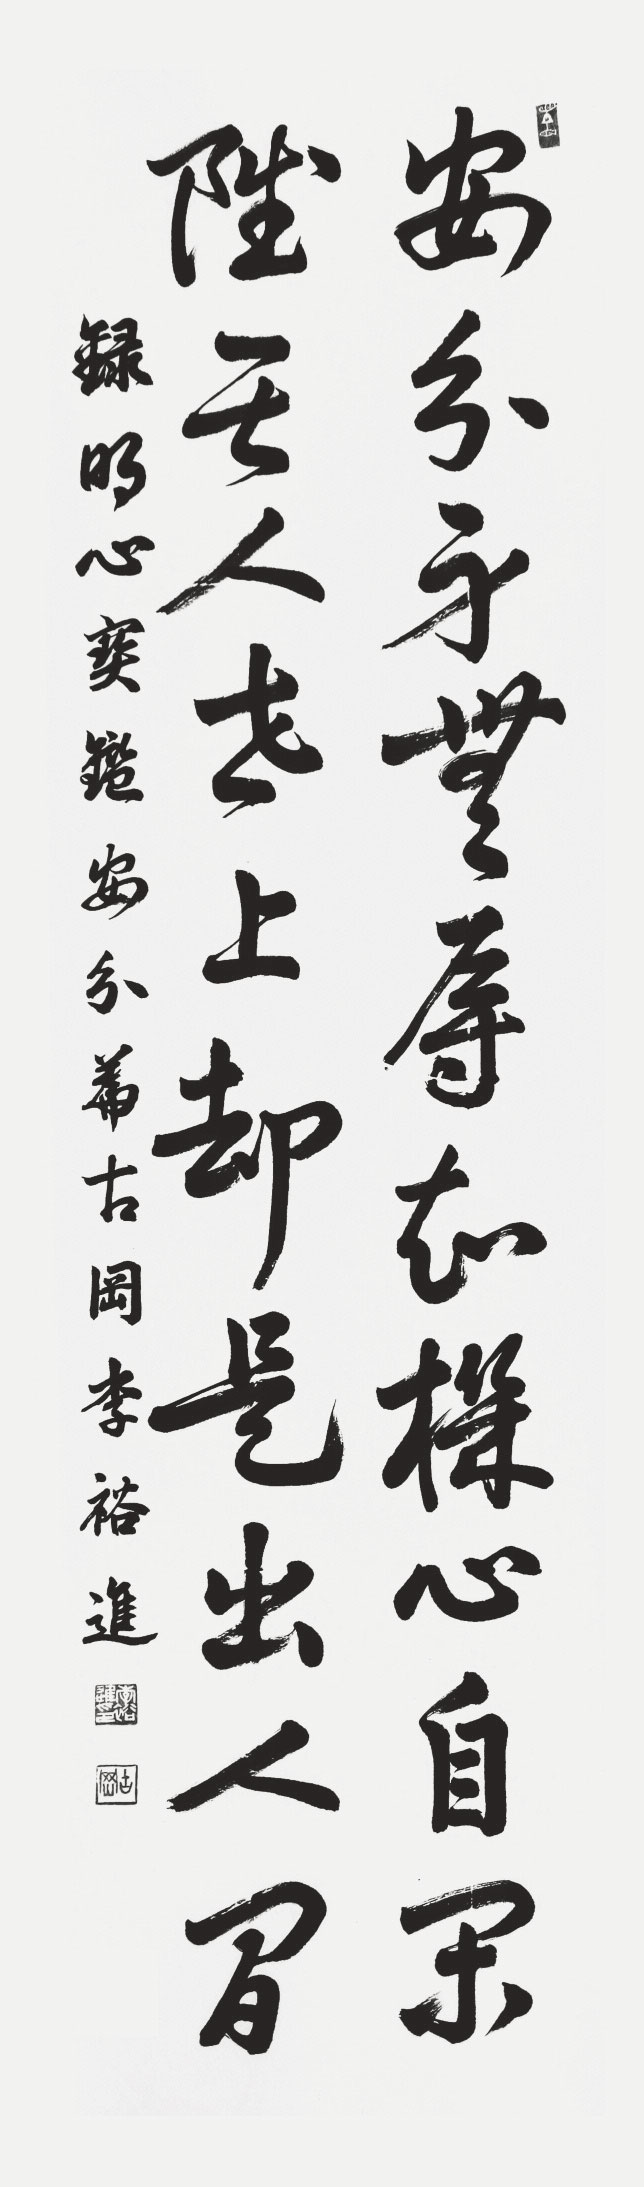 安分身無辱知機心自閑
雖居人世上却是出人間
録明心寶鑑安分篇古岡李裕進
古岡